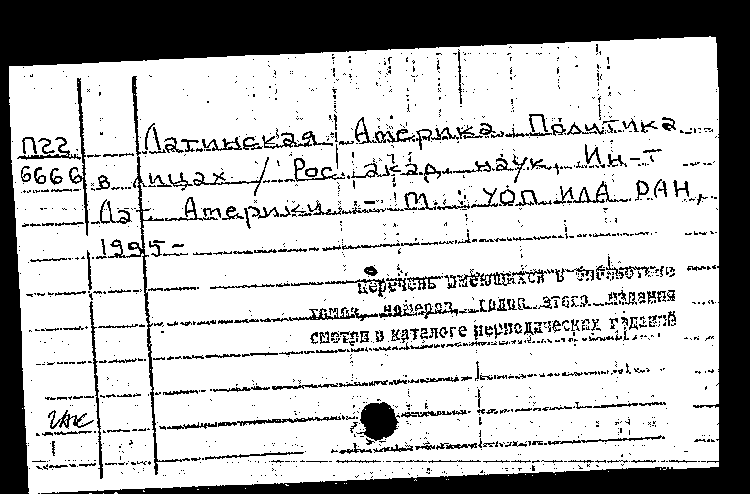 П22 Латинская Америка. Политика
6666 в лицах / Рос. акад. наук, Ин-т
Лат. Америки. - М.: УОП ИЛА РАН,
1995-
Перечень имеющихся в библиотеке
томов, номеров, годов этого издания
смотри в каталоге периодических изданий